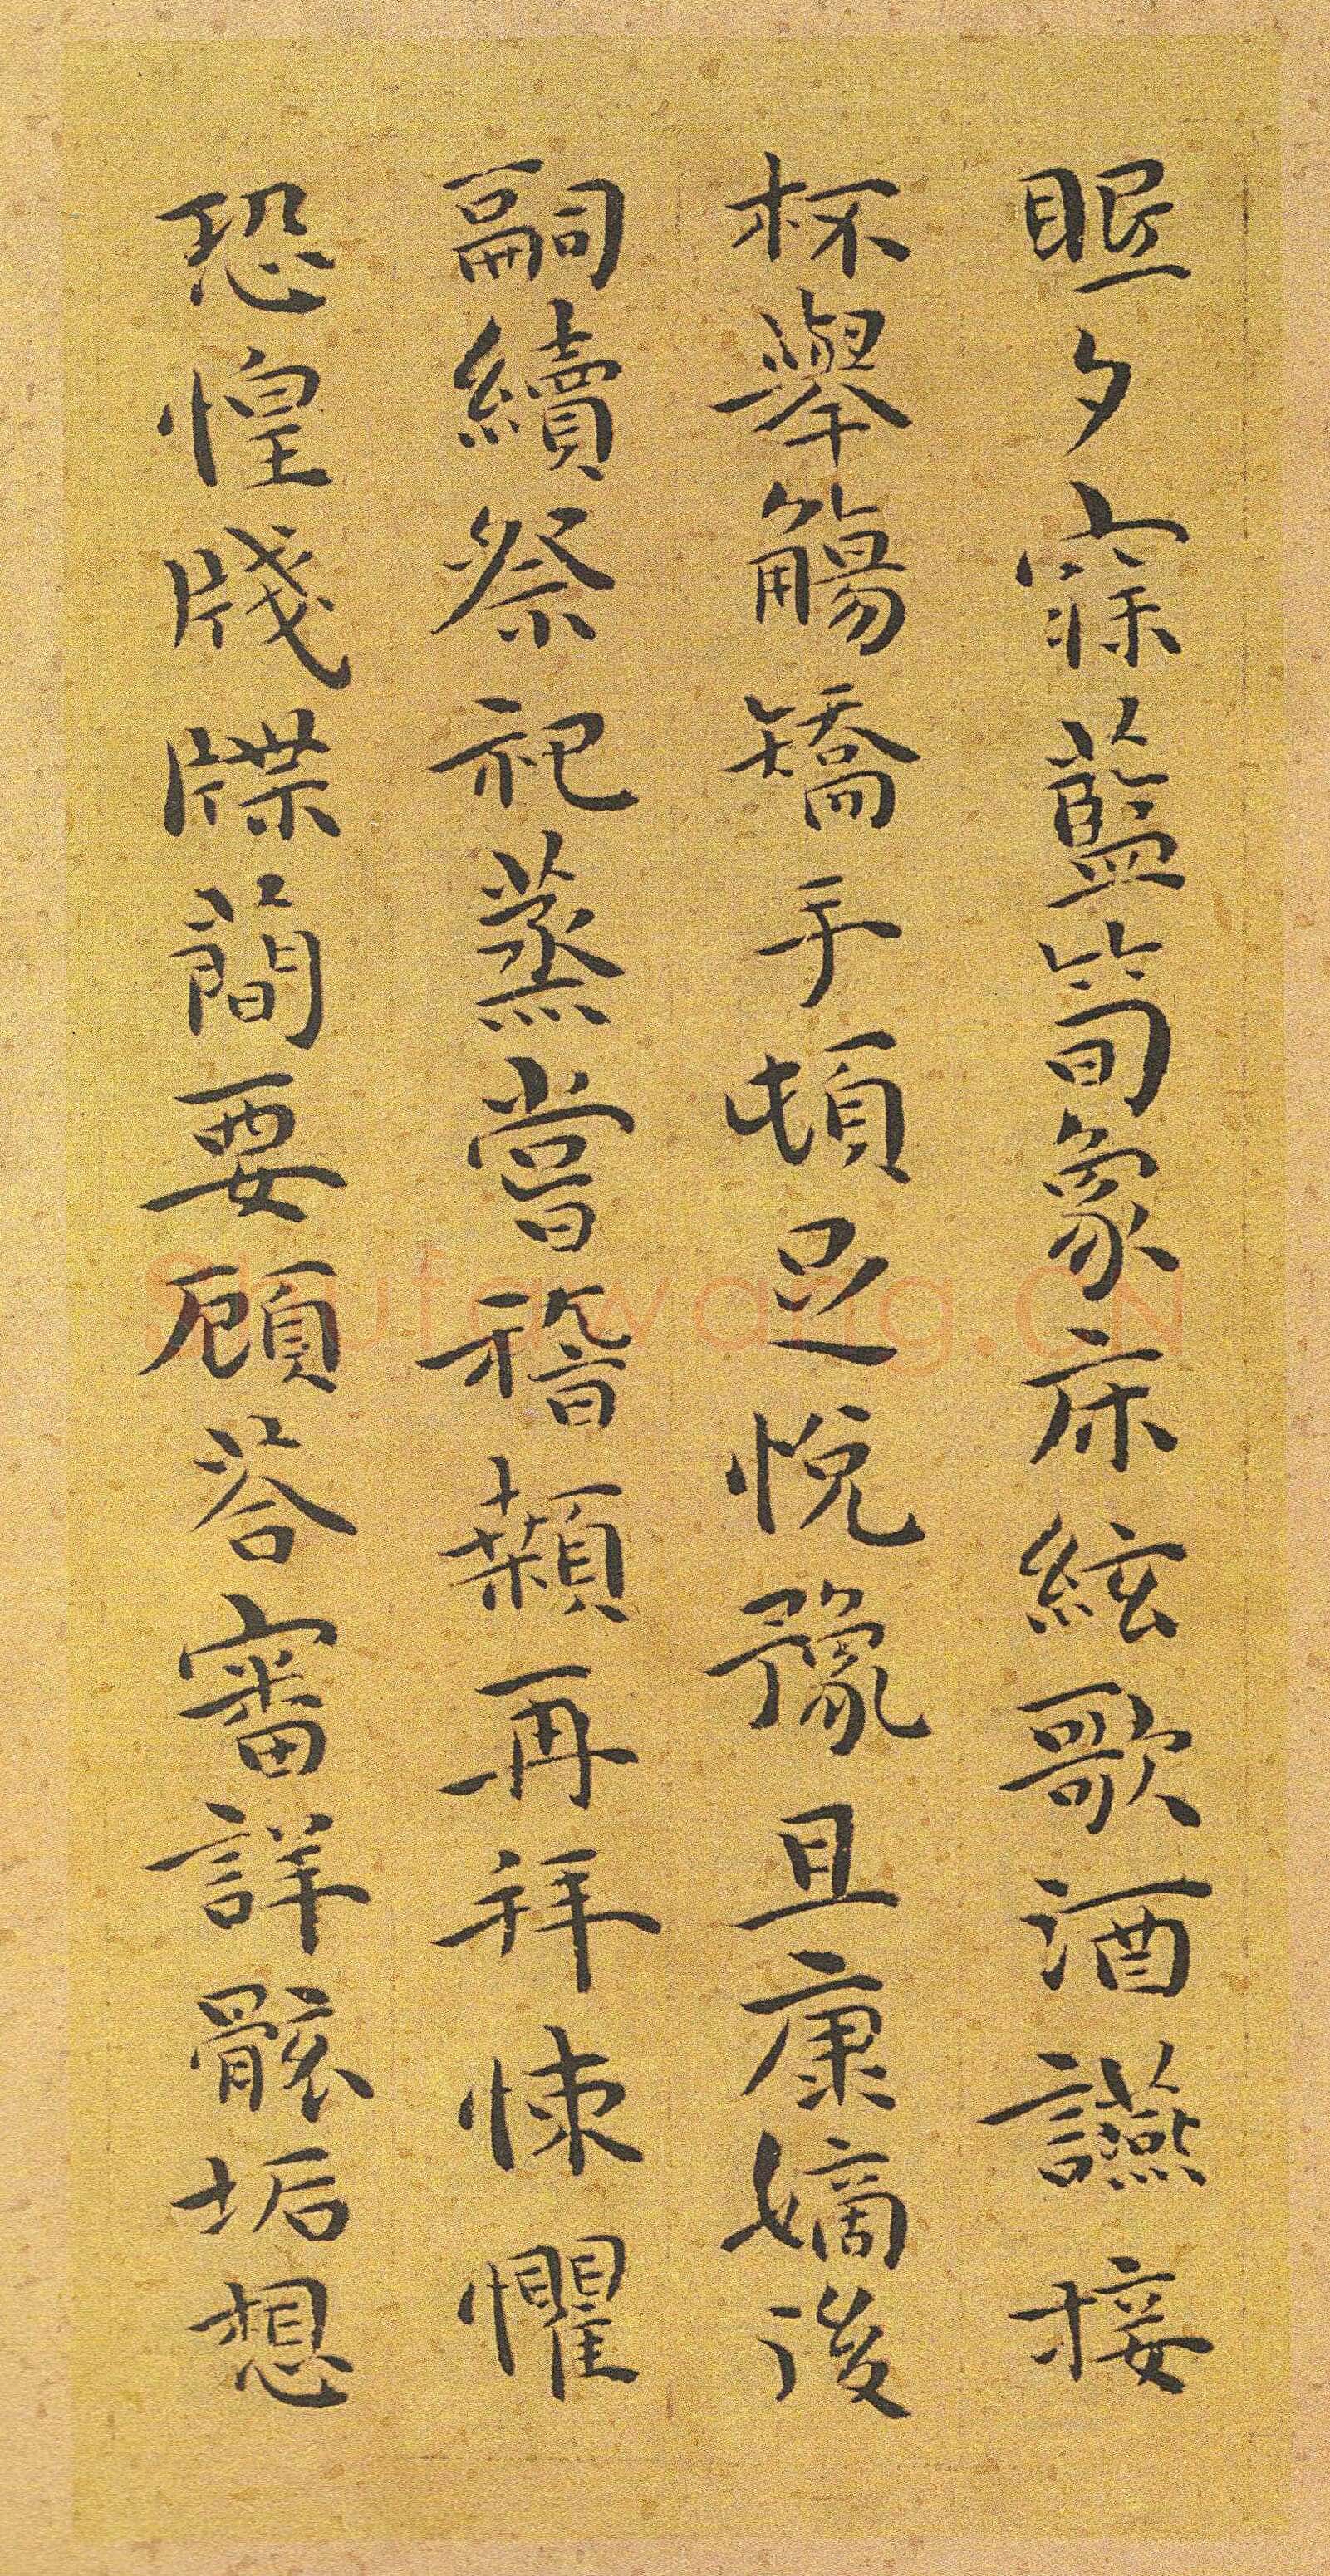 眠夕寐藍筍象床絃歌酒讌接
杯舉觴矯手頓足悅豫且康嫡後
嗣續祭祀蒸嘗稽顙再拜悚懼
恐惶牋牒蕳要顧荅審詳骸垢想
Shufawang.CN